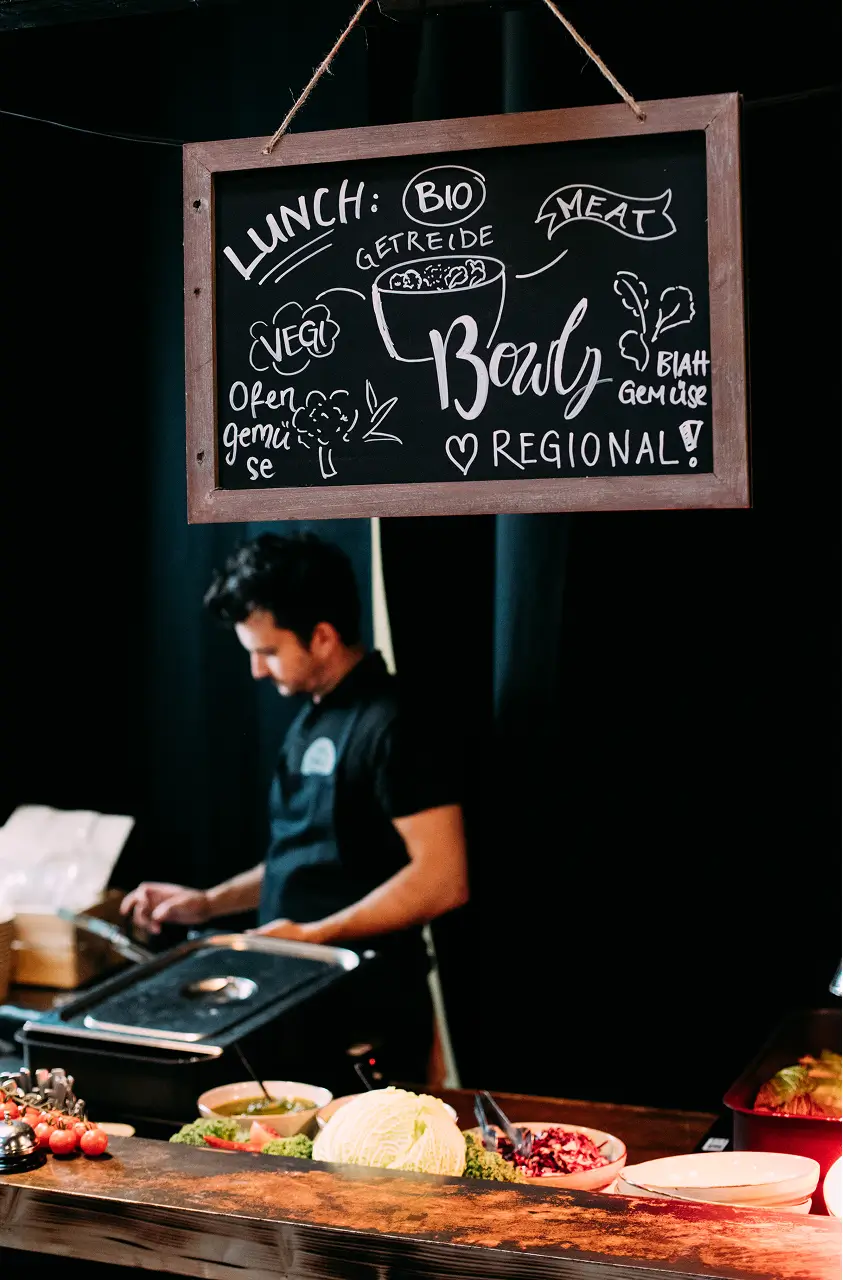 LUNCH:
BIO
GETREIDE
MEAT
VEGI
Bowls
Ofen
gemü
se
BlAtt
GEMüSe
REGIONAL!